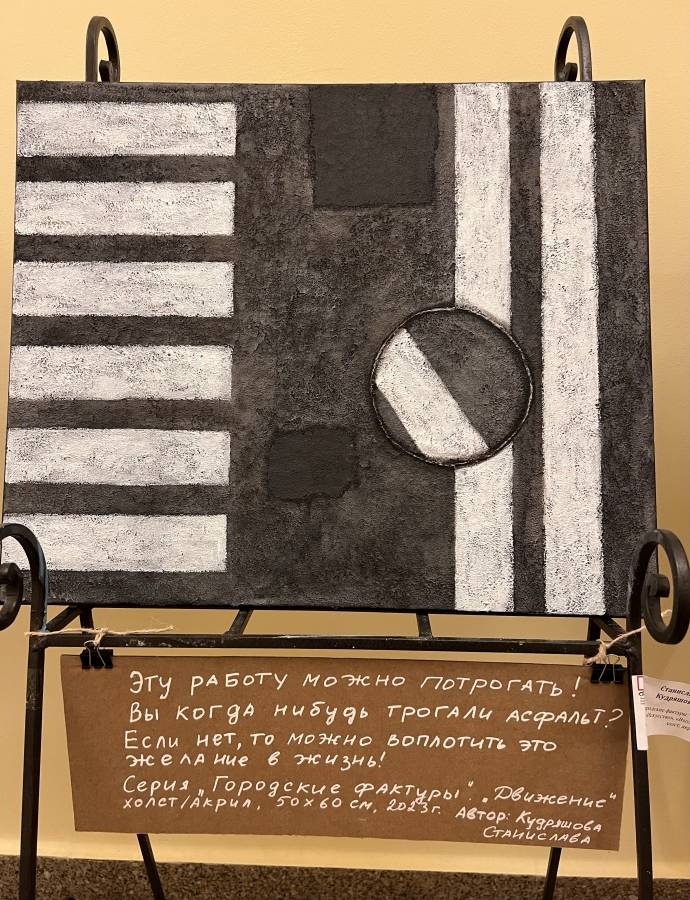 Эту работу можно потрогать!
Вы когда нибудь трогали асфальт?
Если нет, то можно воплотить это
желание в жизнь!
Серия „Городские фактуры" „Движение"
холст/Акрил, 50×60 см, 2023г. Автор: Кудряшова
Станислава